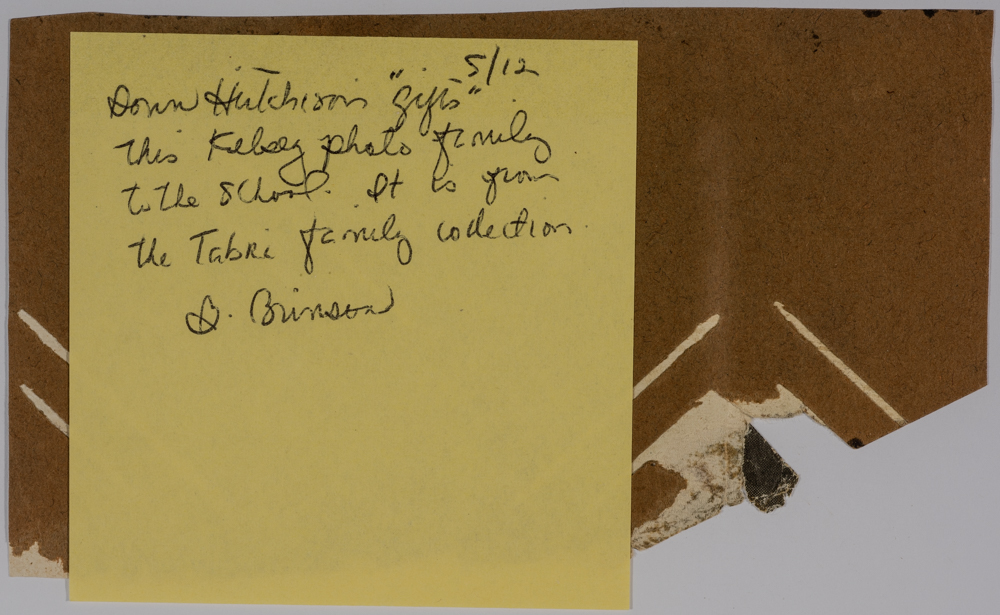 5/12
Donn Hutchison "gifts"
this Kelsey photo family
to the school. It is from
the Tabri family collection.
D. Brinson